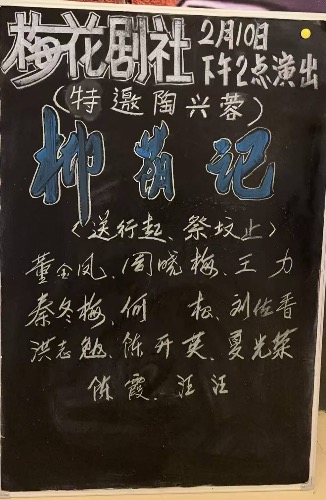 梅花剧社 2月10日
下午2点演出
(特邀陶兴蓉)
柳荫记
<送行起、祭坟止>
董全凤、周晓梅、王 力
秦冬梅、何 松、刘佐香
洪志勉、陈开英、夏光荣
陈霞、汪汪